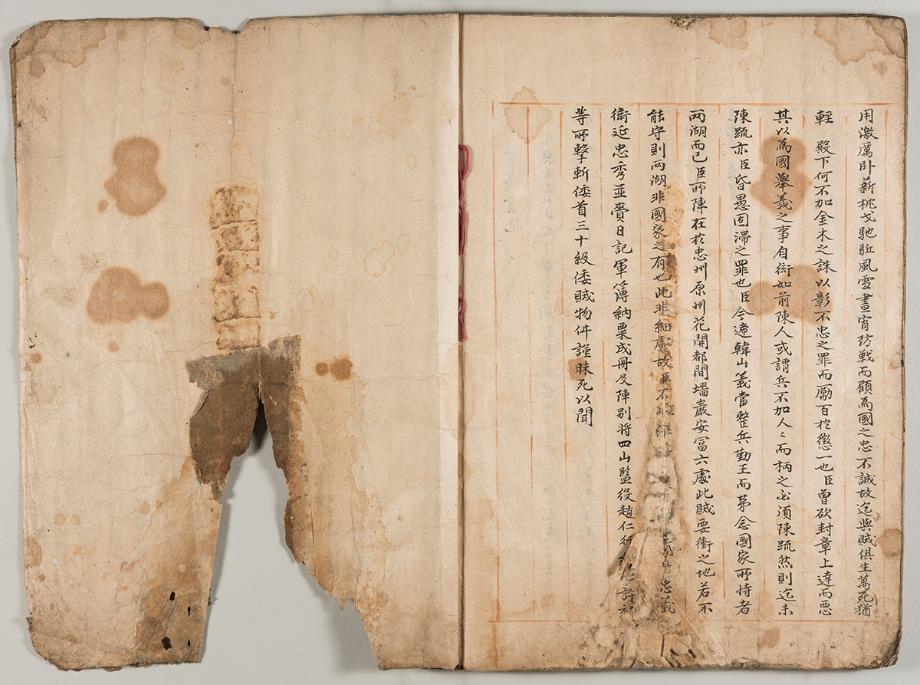 用激厲卧薪枕戈馳騁風雲晝宵防戰而顧爲國之忠不誠故迄與賊俱生萬死猶
輕 殿下何不加金木之誅以彰不忠之罪而勵百於懲一也臣曾欲封章上達而恐
其以爲國舉義之事自衒如前陳人或謂兵不加人〻而柄之必須陳䟽然則迄未
陳䟽亦臣昏愚固滯之罪也臣今適韓山義當整兵勤王而第念國家所恃者
兩湖而已臣所陣在於忠州原州花開都間墻巖安富六處此賊要衝之地若不
能守則兩湖非國家之有也此非細慮故臣不 忠義
衛延忠秀並賫日記軍簿納粟成冊及陣別將四山監役趙仁行 許
等所擊斬倭首三十級倭賊物件謹昧死以聞